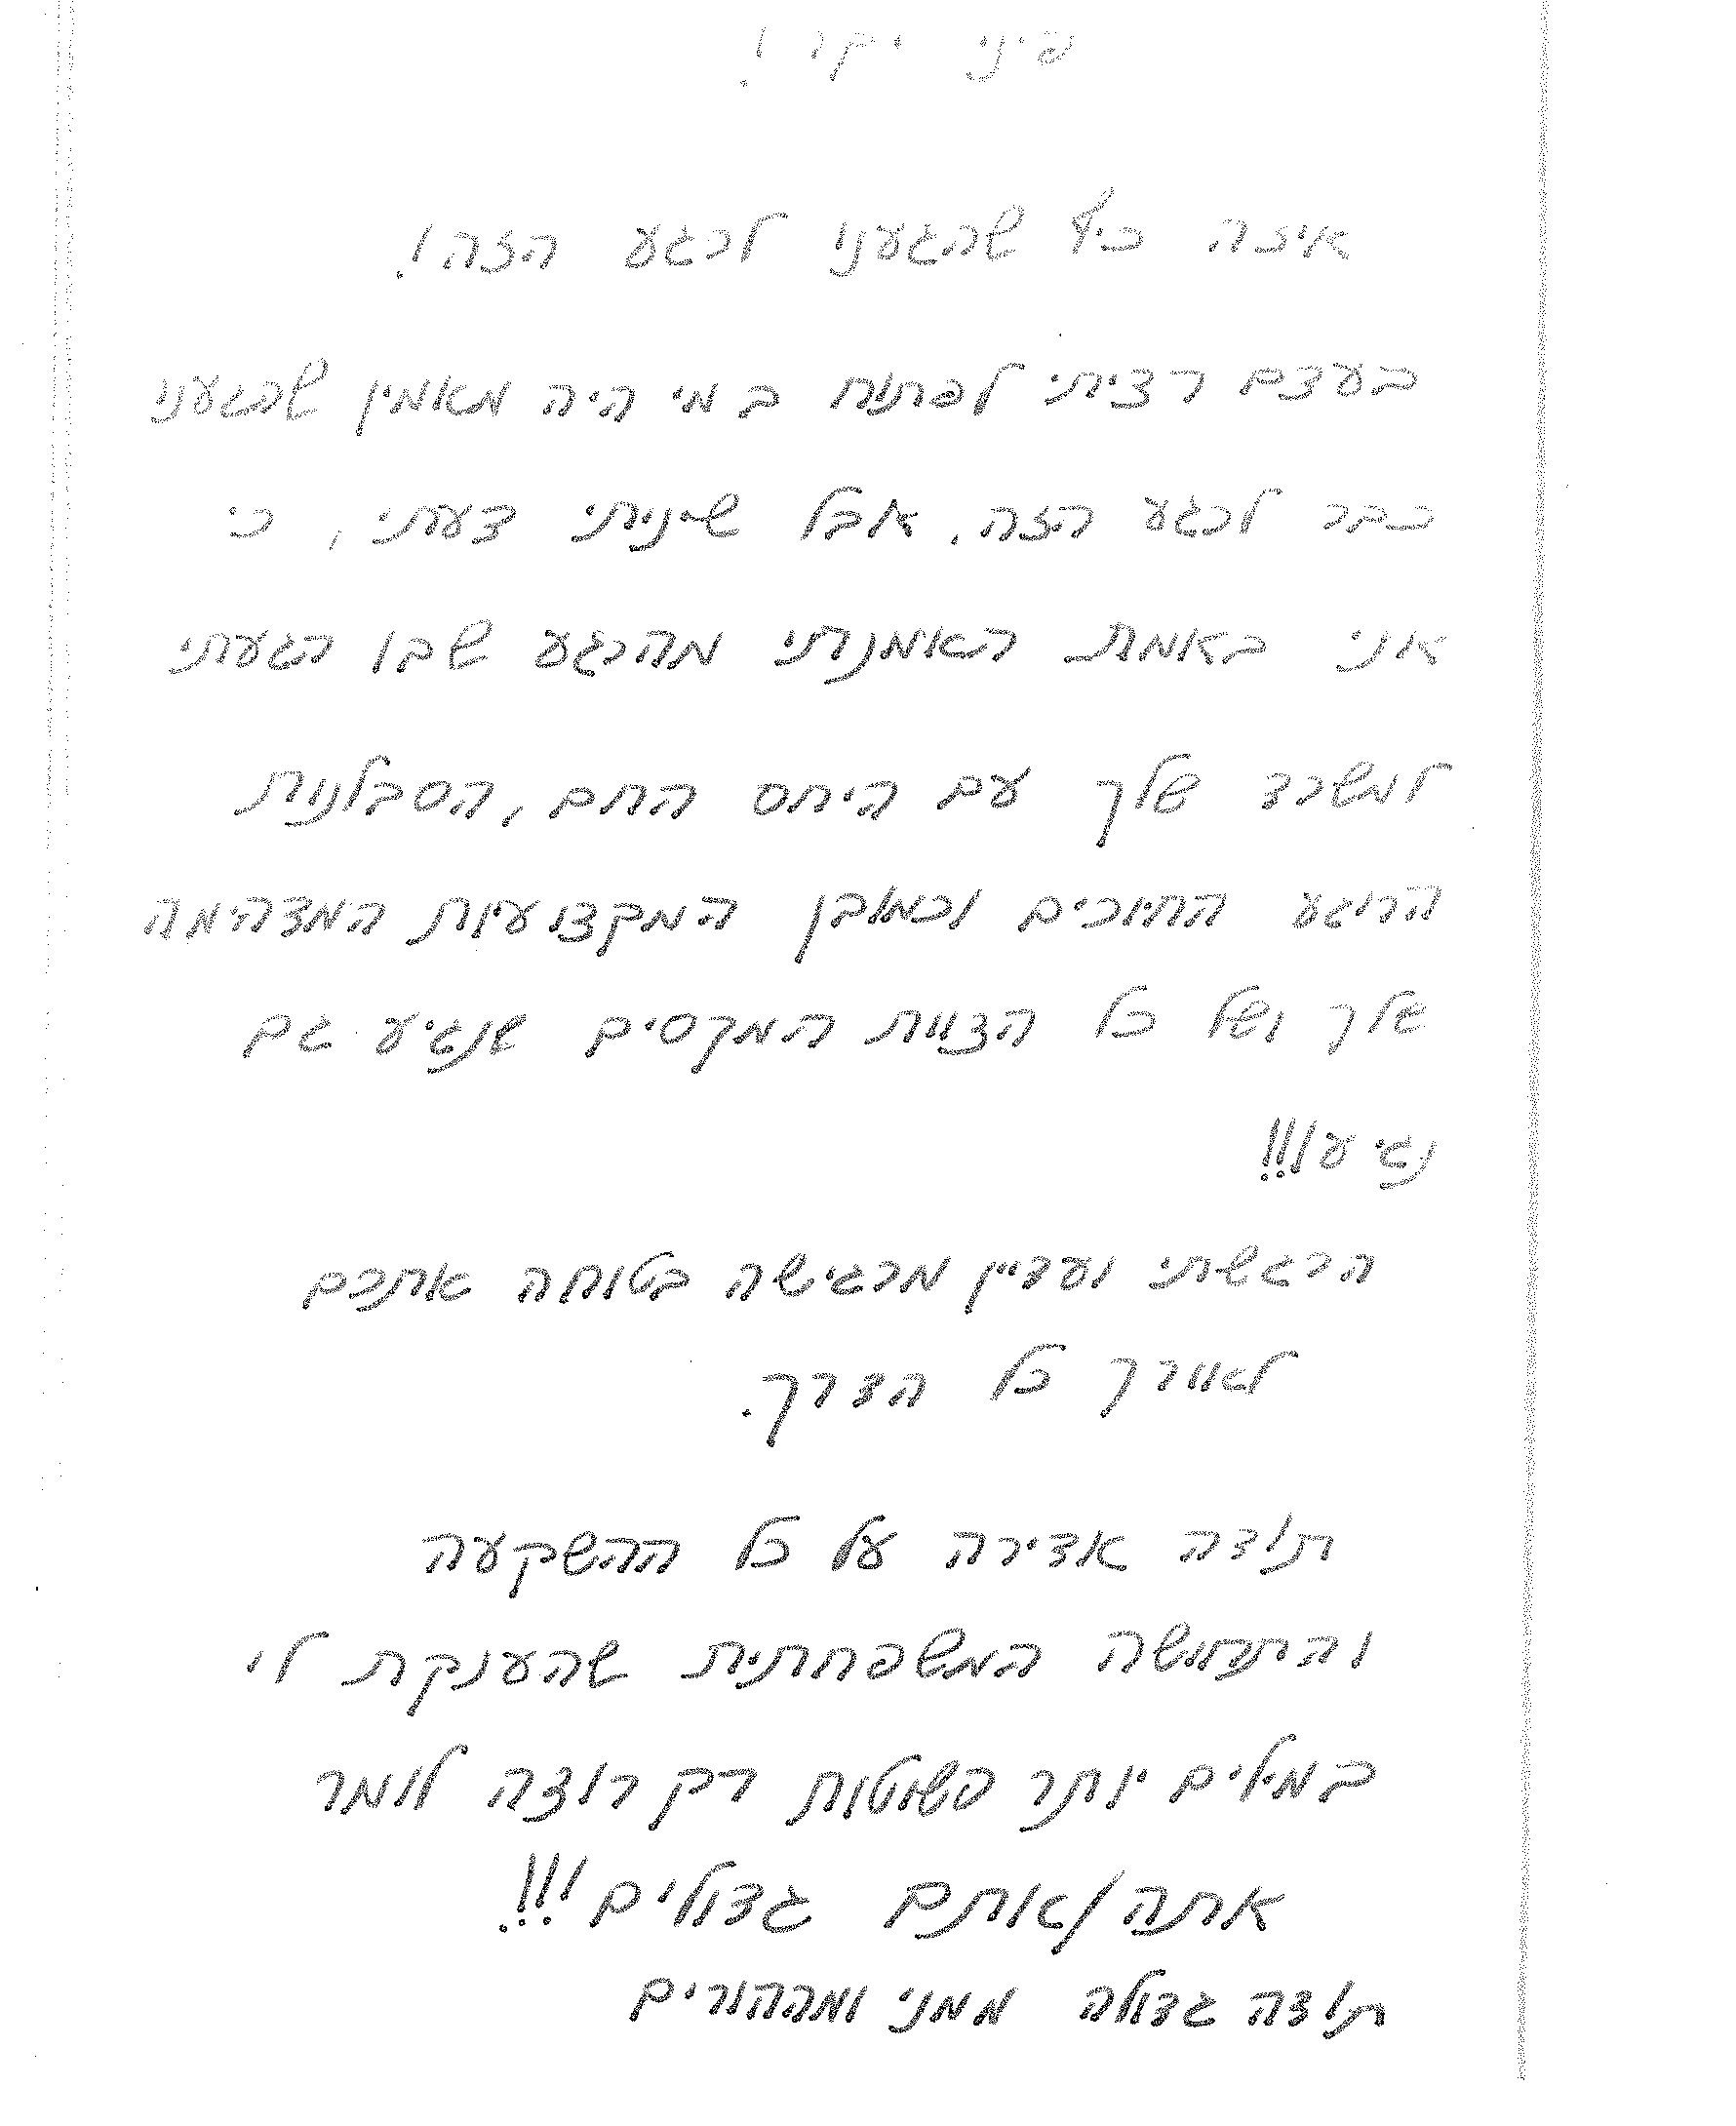 פיני יקר!
איזה כיף שהגענו לרגע הזה!
בעצם רציתי לפתוח ב מי היה מאמין שהגענו
כבר לרגע הזה. אבל שיניתי דעתי, כי
אני באמת האמנתי מהרגע שבו הגעתי
למשרד שלך עם היחס החם, הסבלנות
הרוגע החיוכים וכמובן המקצועיות המדהימה
שלך ושל כל הצוות המקסים שנגיע גם
נגיע!!!
הרגשתי ועדיין מרגישה בטוחה אתכם
לאורך כל הדרך.
תודה אדירה על כל ההשקעה
והתחושה המשפחתית שהענקת לי
במילים יותר פשוטות רק רוצה לומר
אתה/אתם גדולים!!!
תודה גדולה ממני ומההורים